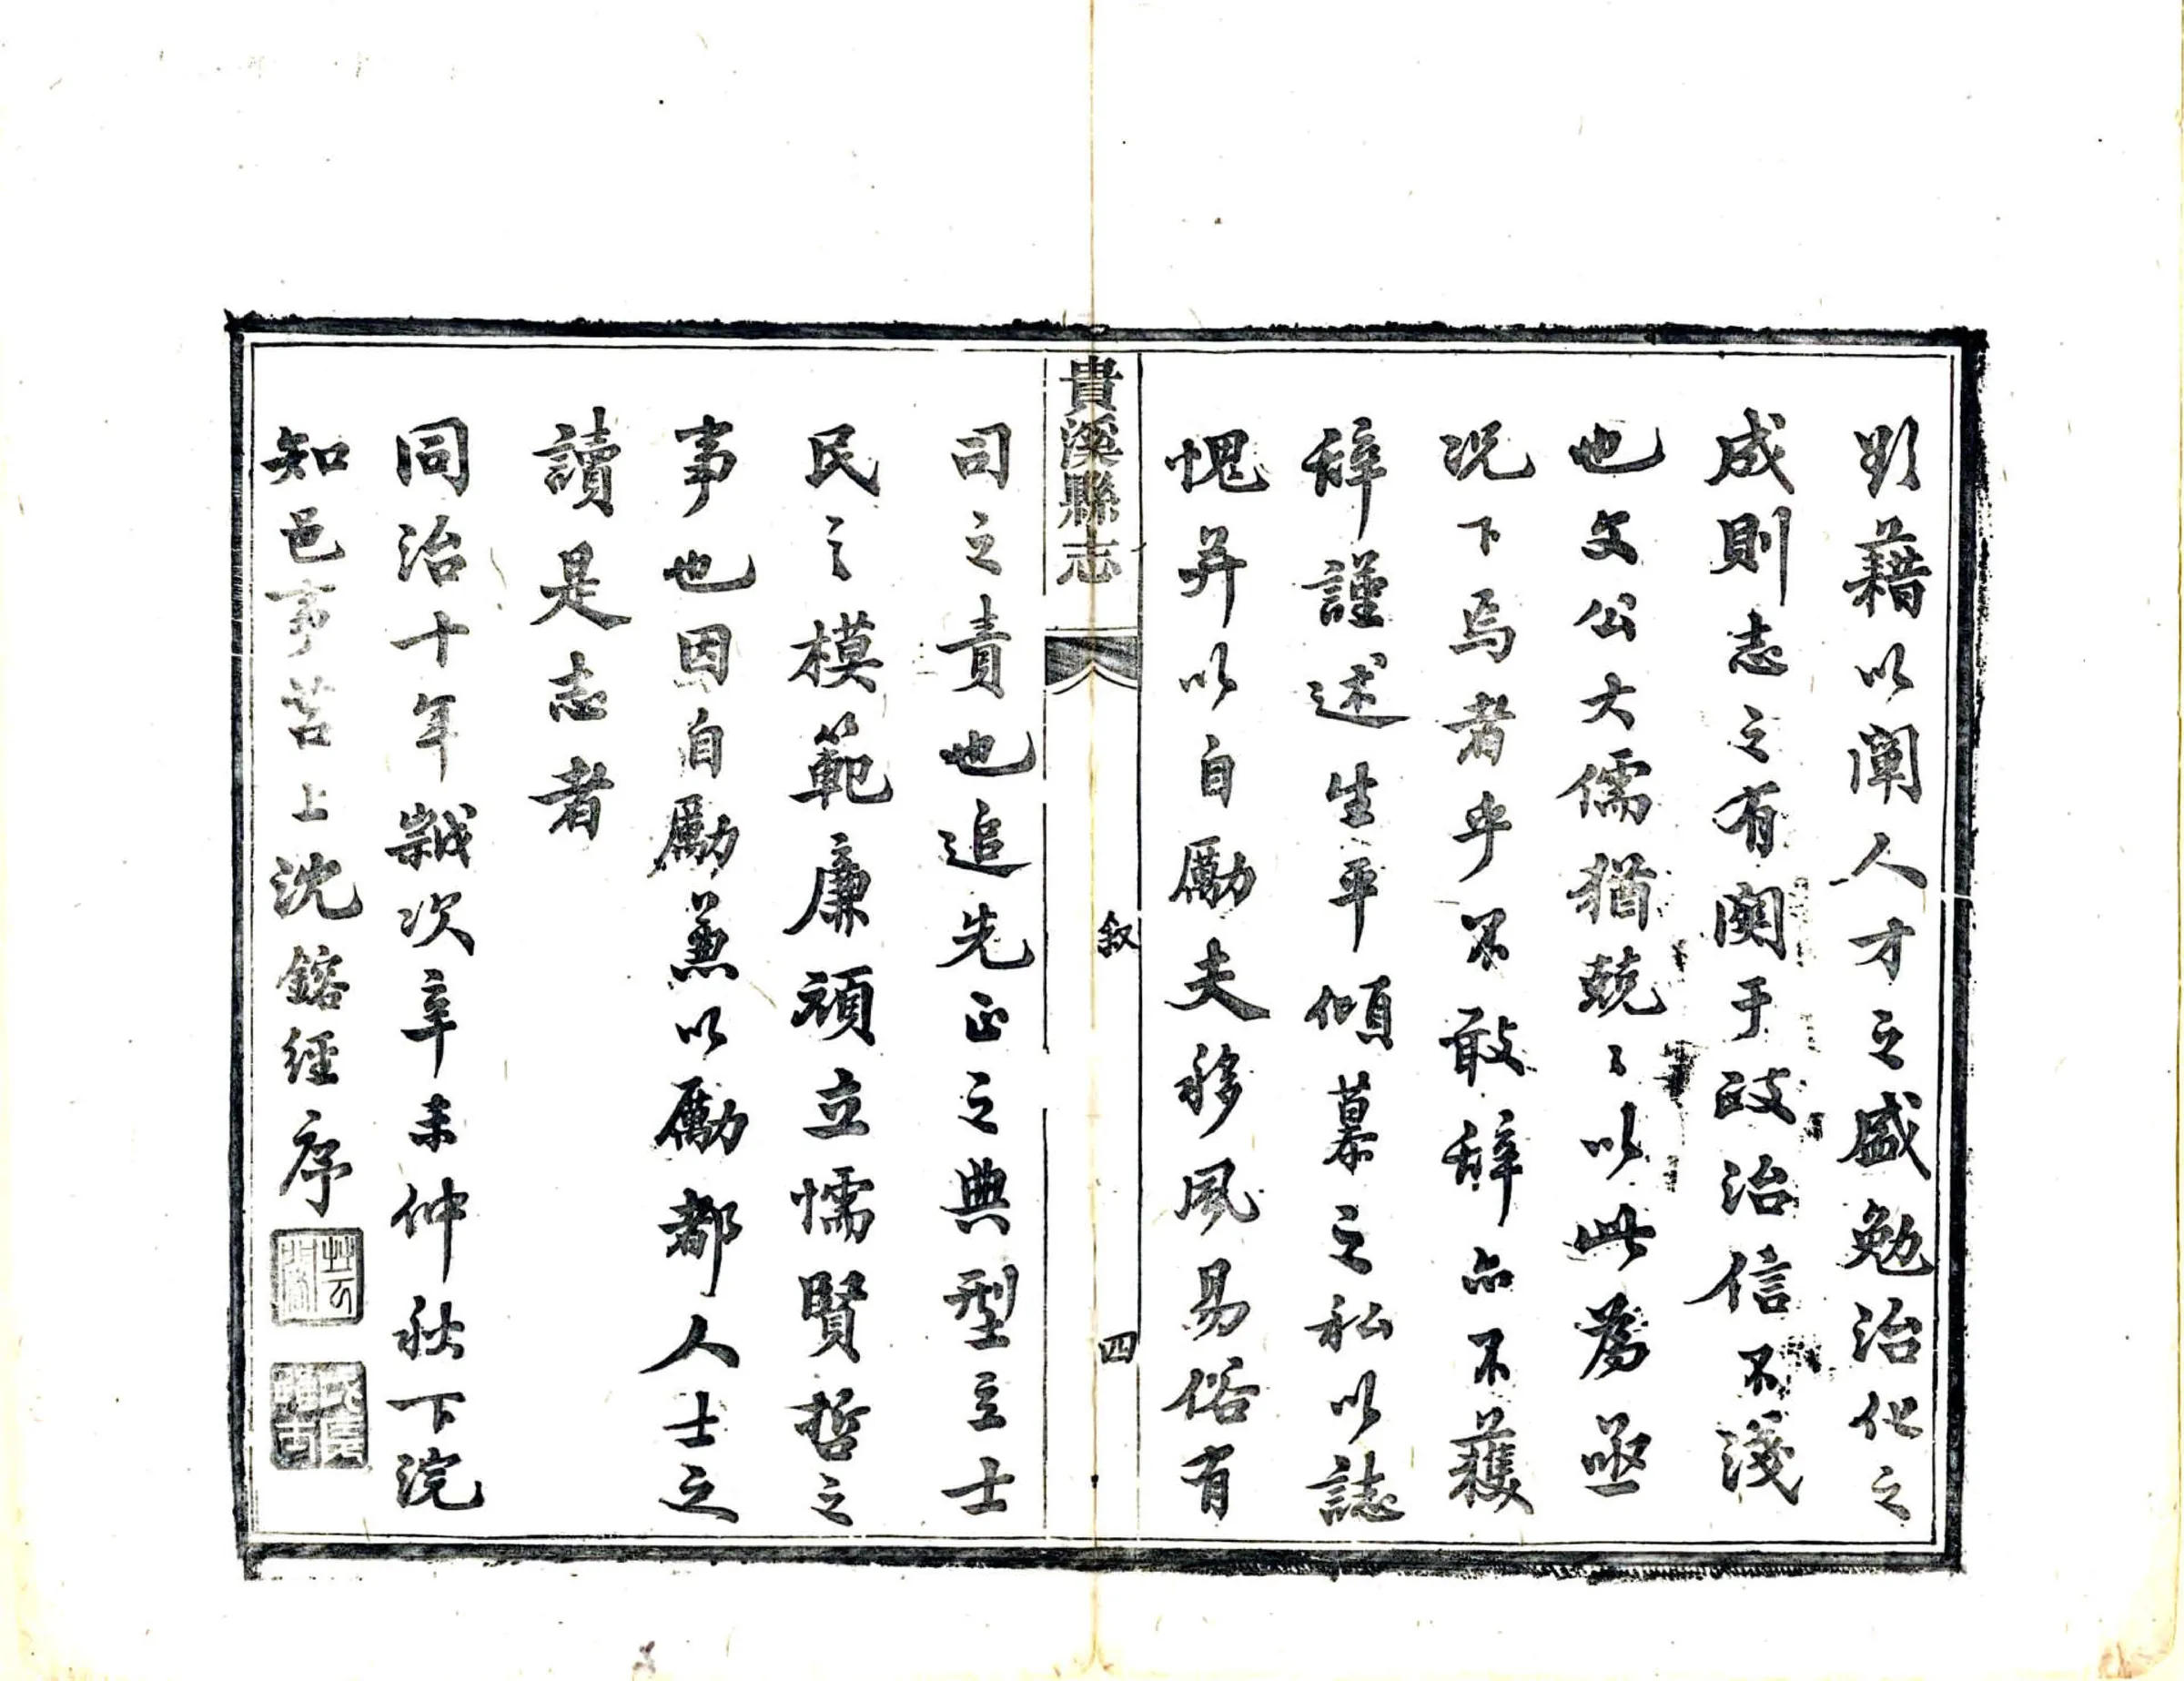 歟藉以闡人才之盛勉治化之
成則志之有関于政治信不淺
也文公大儒猶兢〻以此為亟
況下焉者乎不敢辞亦不獲
辞謹述生平傾慕之私以誌
愧并以自勵夫移風易俗有
貴溪縣志
叙
四
司之責也追先正之典型立士
民之模範廉頑立懦賢哲之
事也因自勵兼以勵都人士之
讀是志者
同治十年嵗次辛未仲秋下浣
知邑事苕上沈鎔経序